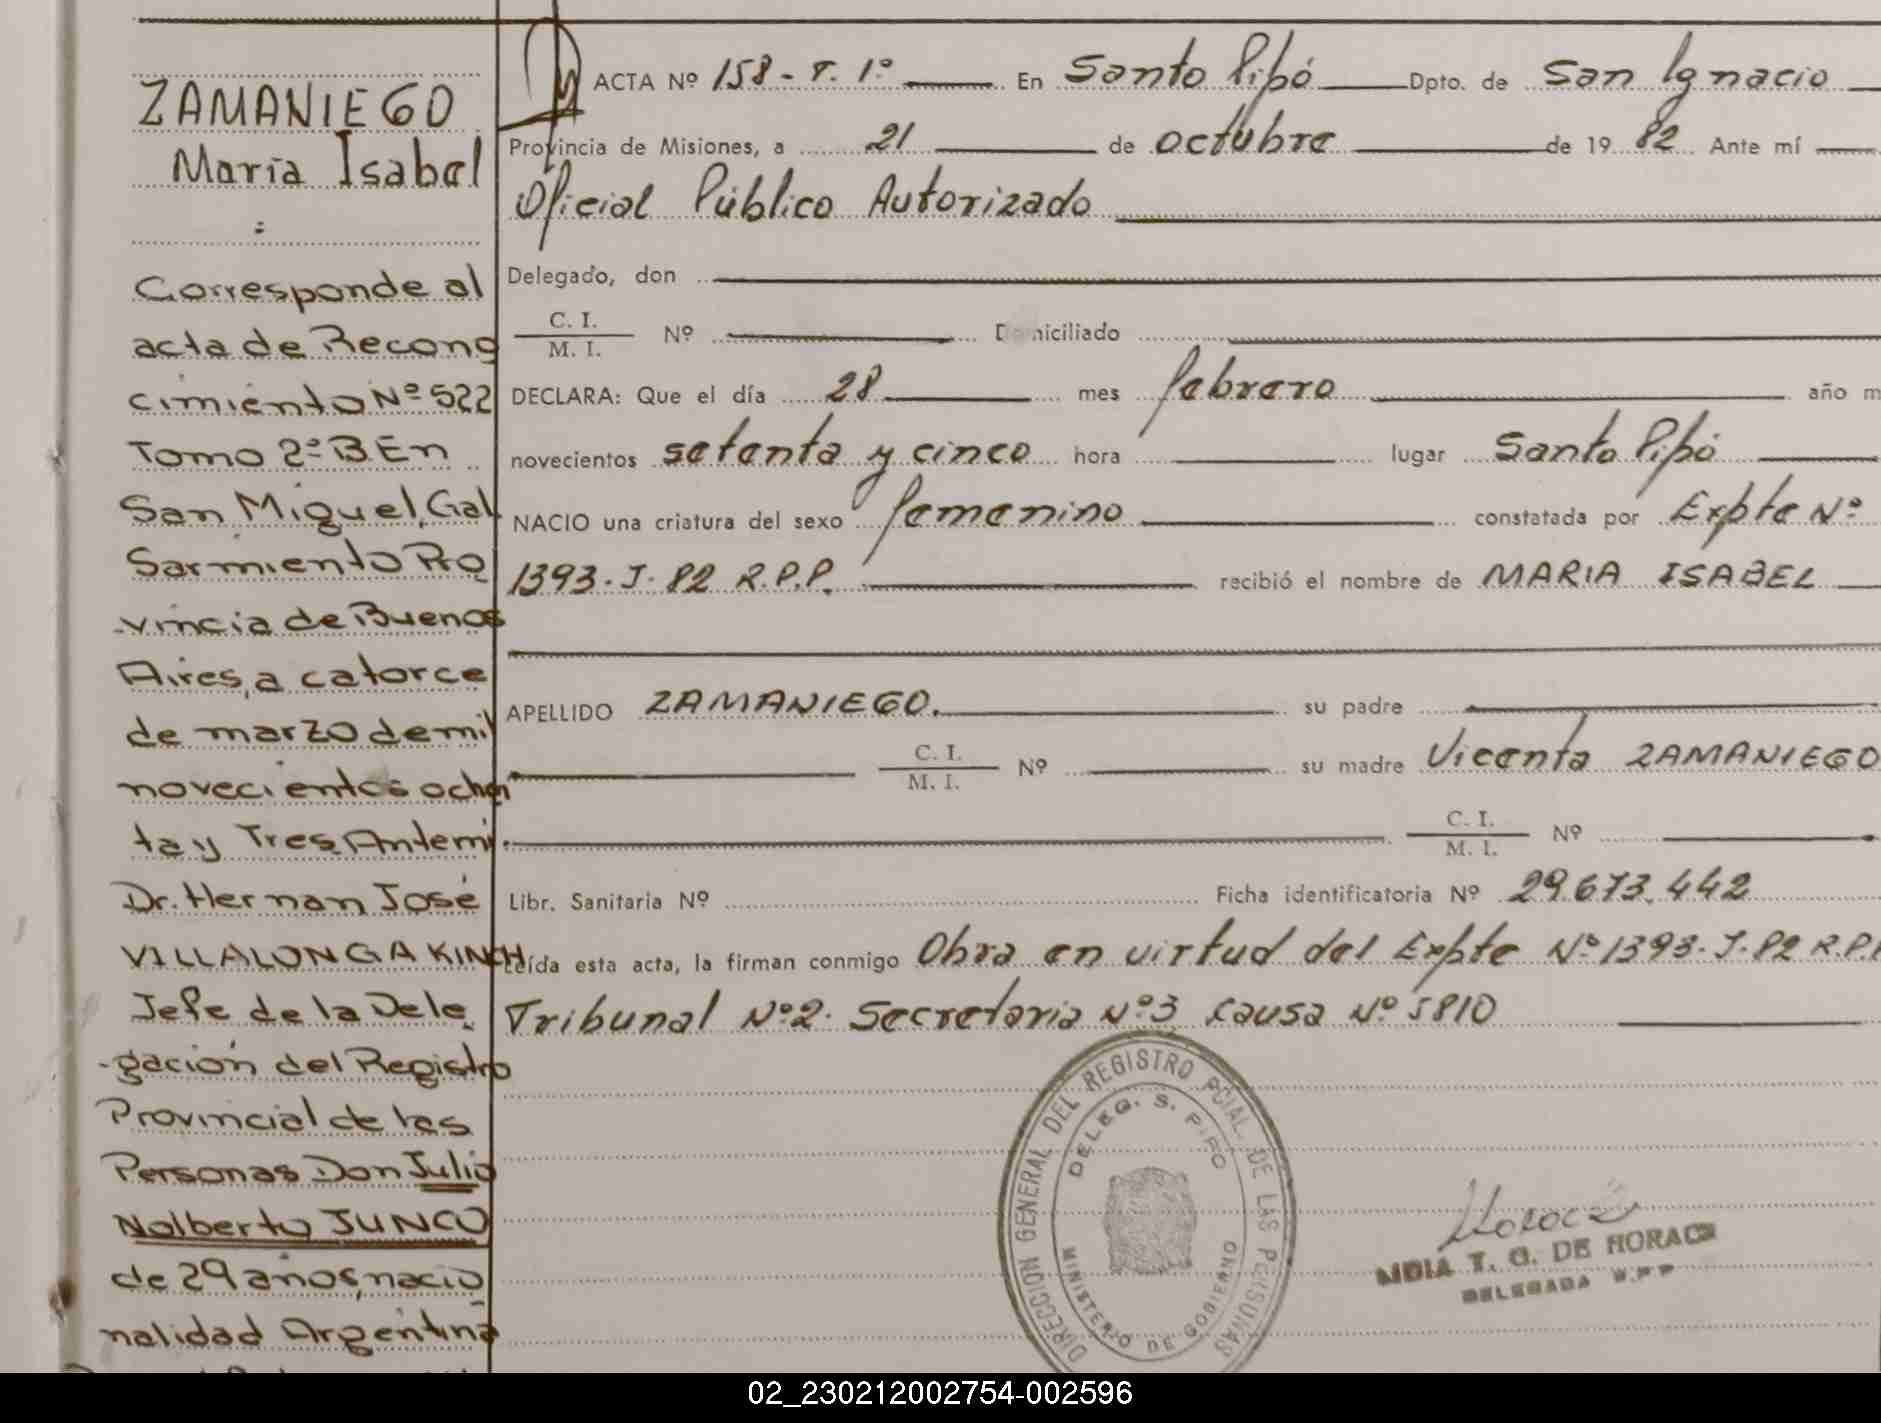 ZAMANIEGO
María Isabel
Corresponde al
acta de Recono
cimiento Nº 522
Tomo 2º B En
San Miguel, Gal
Sarmiento Pro
-vincia de Buenos
Aires, a catorce
de marzo de mil
novecientos ochen
ta y Tres Ante mi
Dr. Hernan José
VILLALONGA KINCH
Jefe de la Dele
-gación del Registro
Provincial de las
Personas Don Julio
Nolberto JUNCO
de 29 años, nacio
nalidad Argentina
ACTA Nº 158 - T. 1º En Santo Pipó Dpto. de San Ignacio
Provincia de Misiones, a 21 de octubre de 1982 Ante mí
Oficial Público Autorizado
Delegado, don
C. I. / M. I. Nº Domiciliado
DECLARA: Que el día 28 mes febrero año m
novecientos setenta y cinco hora lugar Santo Pipó
NACIO una criatura del sexo femenino constatada por Expte Nº
1393-J-82 R.P.P. recibió el nombre de MARIA ISABEL
APELLIDO ZAMANIEGO. su padre
C. I. / M. I. Nº su madre Vicenta ZAMANIEGO
C. I. / M. I. Nº
Libr. Sanitaria Nº Ficha identificatoria Nº 29.673.442
Leída esta acta, la firman conmigo Obra en virtud del Expte Nº 1393-J-82 R.P.P
Tribunal Nº 2. Secretaria Nº 3 causa Nº 5810
DIRECCION GENERAL DEL REGISTRO PCIAL. DE LAS PERSONAS
DELEG. S. PIPO
MINISTERIO DE GOBIERNO
LIDIA T. G. DE HORACZ
DELEGADA R.P.P
02_230212002754-002596